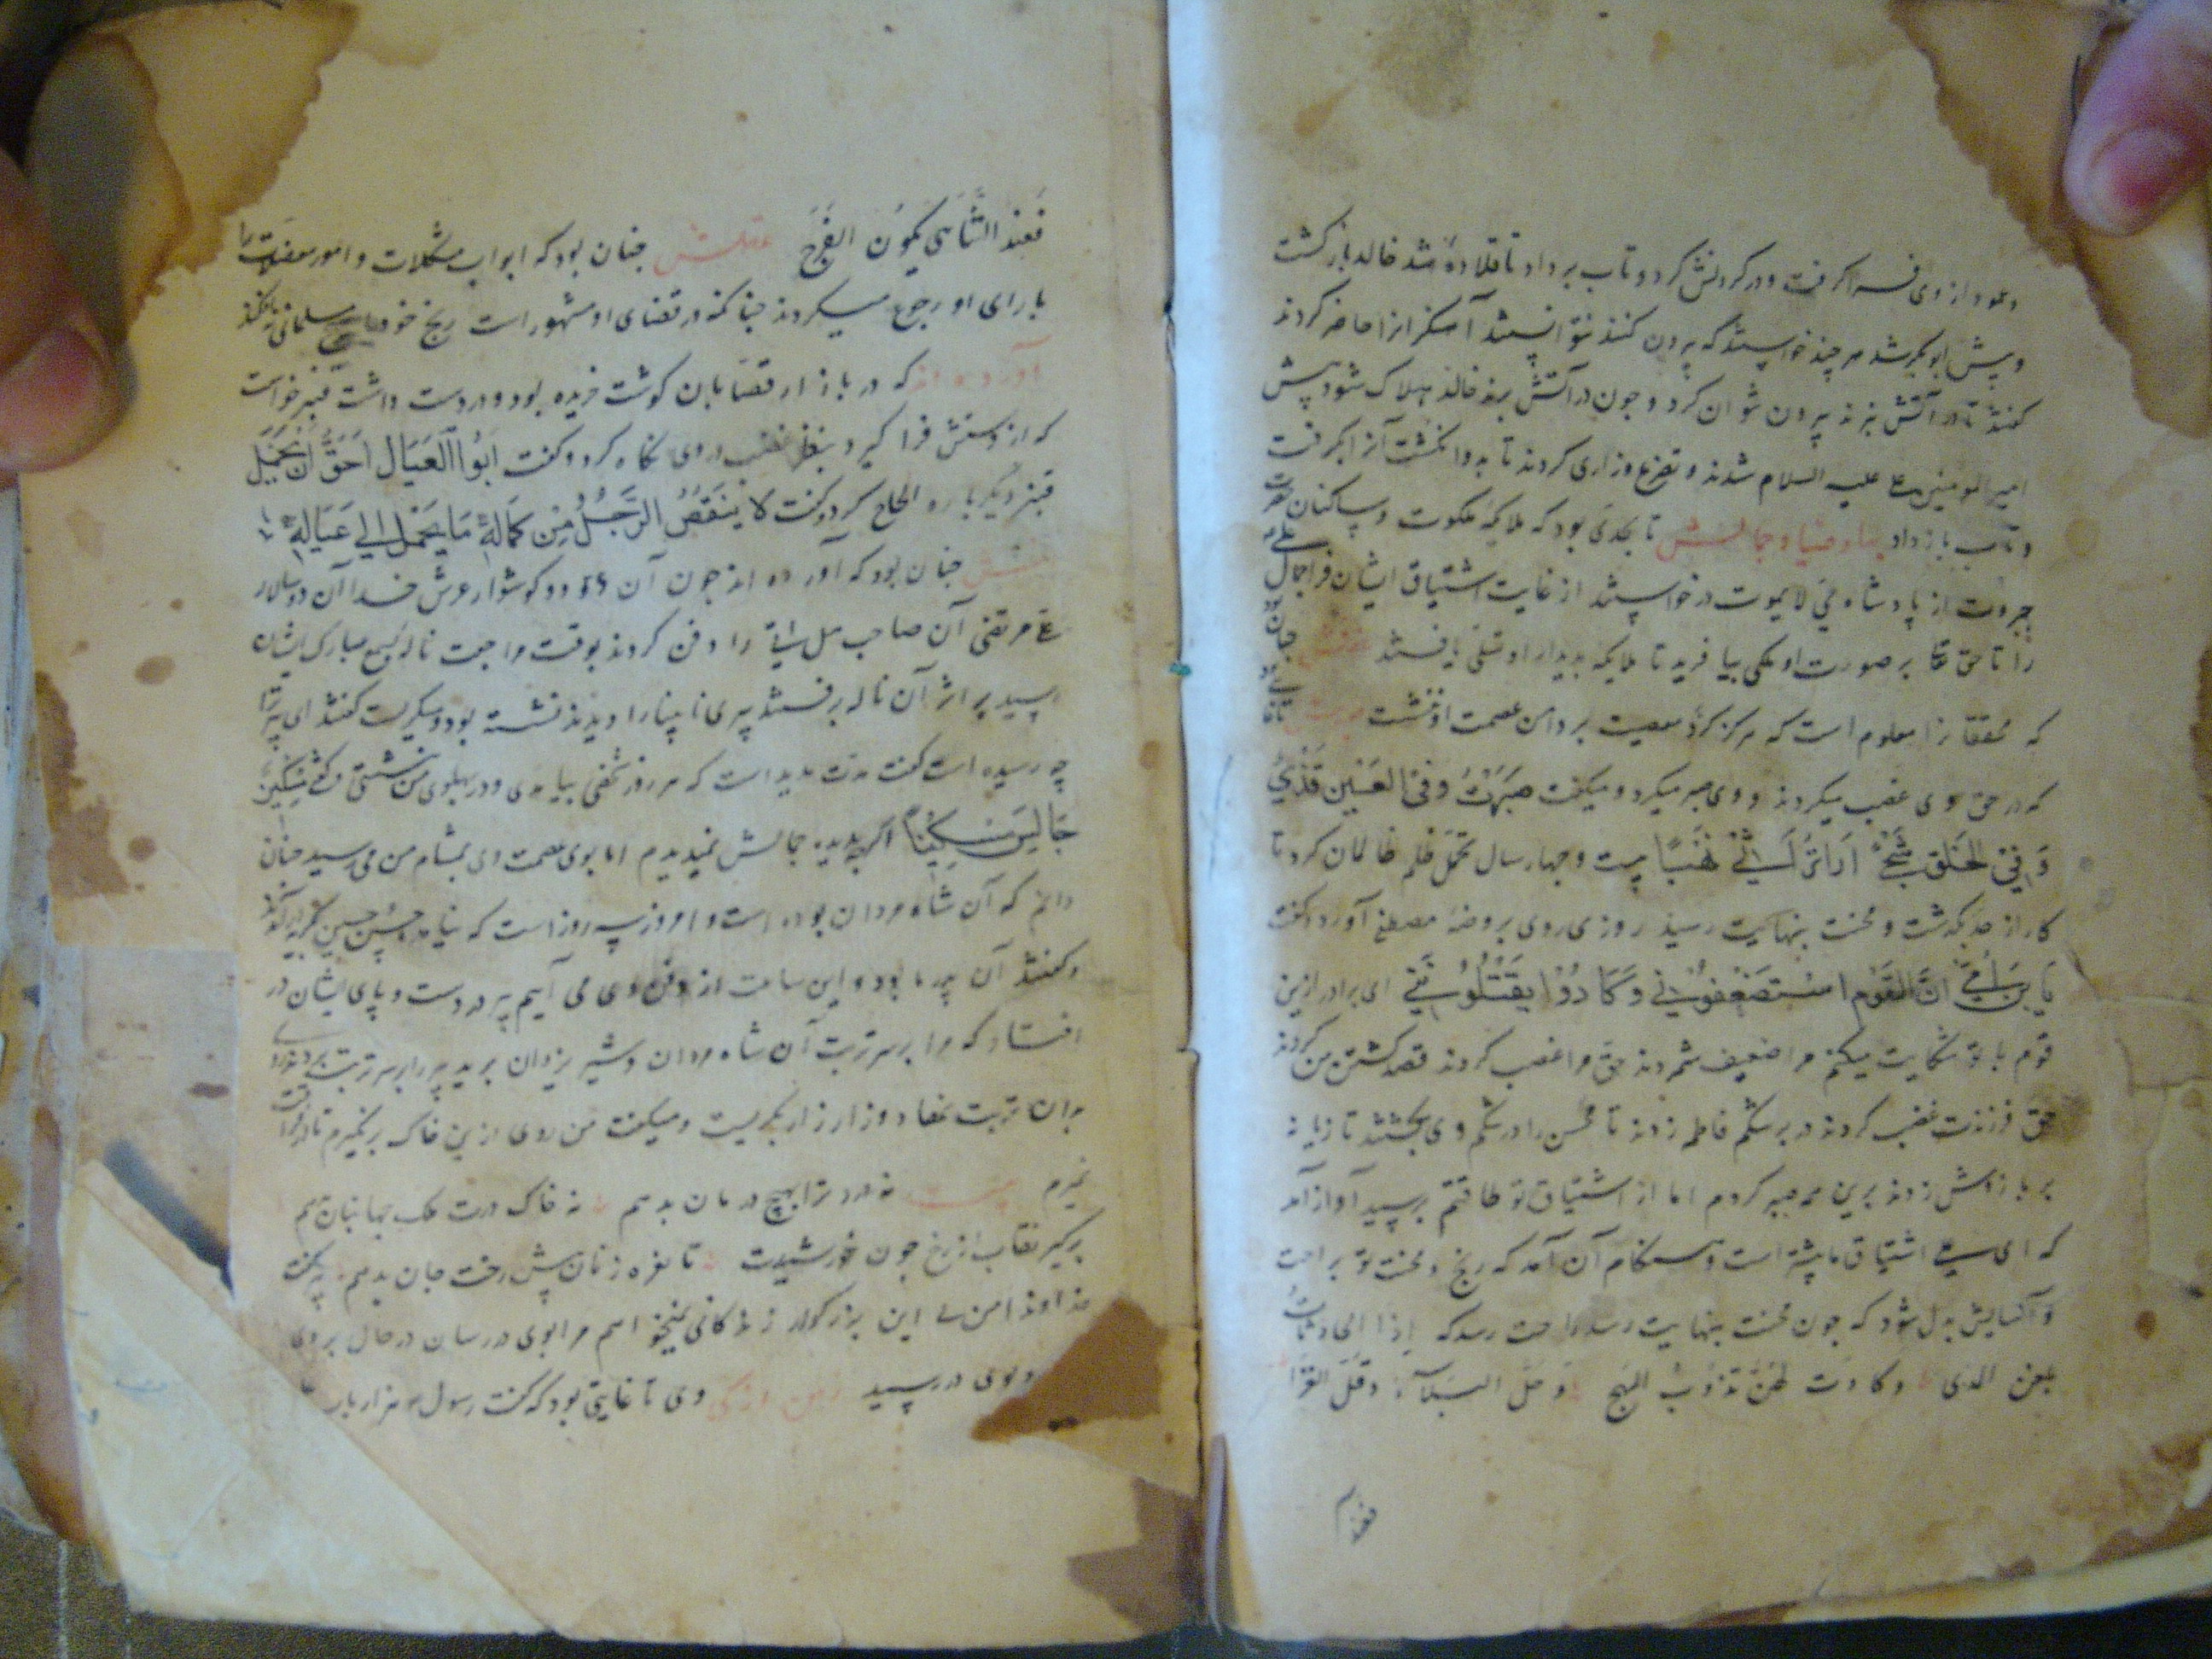 وعمود از وی فرا گرفت و در کردنش کرد و تاب برداد تا قلاده شد خالد بازکشت
و پیش ابوبکر شد هر چند خواستند که بیرون کنند نتوانستند آهنکرانرا حاضر کردند
کفتند تا در آتش نبرند بیرون نتوان کرد و چون در آتش برند خالد هلاک شود پیش
امیرالمومنین علی علیه السلام شدند و تضرع و زاری کردند تا بدو انکشت آنرا بکرفت
و تاب باز داد بها و ضیا و جمالش تا بحدی بود که ملایکه ملکوت و ساکنان
جبروت از پادشاه حی لا یموت درخواستند از غایت اشتیاق ایشان فرا جمال علی
را تا حق تعا بر صورت او ملکی بیافرید تا ملایکه بدیدار او تسلی یافتند عصمتش چنان
که محققانرا معلوم است که هرکز کرد معصیت بر دامن عصمت او ننشست
که در حق وی غصب میکردند و وی صبر میکرد و میکفت صَبَرْتُ وَفِی العَیْنِ قَذًی
وَفِی الحَلْقِ شَجًی اَرَی تُرَاثِی نَهْبًا بیست و چهار سال تحمل ظلم ظالمان کرد تا
کار از حد بکذشت و محنت بنهایت رسید روزی روی بروضهٔ مصطفی آورد و کفت
یَا بْنَ اُمِّ اِنَّ القَوْمَ اسْتَضْعَفُونِی وَکَادُوْا یَقْتُلُونَنِی ای برادر ازین
قوم با تو شکایت میکنم مرا ضعیف شمردند حق مرا غصب کردند قصد کشتن من کردند
حق فرزندت غصب کردند در بر شکم فاطمه زدند تا محسن را در شکم وی بکشتند تازیانه
بر بازوش زدند برین همه صبر کردم اما از اشتیاق تو طاقتم برسید آواز آمد
که ای علی اشتیاق ما بیشتر است و هنکام آن آمد که رنج و محنت تو براحت
و آسایش بدل شود که چون محنت بنهایت رسد راحت رسد که اِذَا الحَادِثَاتُ
بلغن المدی وکادت لهنّ تذوب المهج وحلّ البلاء وقلّ العزا
فعند
فَعِنْدَ التَّنَاهِی یَکُونُ الفَرَجُ عقلش چنان بود که ابواب مشکلات و امور معضلات را
با رای او رجوع میکردند چنانکه در قضای او مشهور است رنج خود
آورده اند که در بازار قصابان کوشت خریده بود و در دست داشت قنبر خواست
که از دستش فرا کیرد بنظر غضب در وی نکاه کرد و کفت اَبُوا العَیَالِ اَحَقُّ اَنْ یَحْمِلَ
قنبر دیکر باره الحاح کرد و کفت لَا یَنْقُصُ الرَّجُلُ مِنْ کَمَالِهٖ مَا یَحْمِلُ اِلی عَیَالِهٖ
چنان بود که آورده اند چون آن دو کوشوار عرش خدا آن دو سالار
مرتضی آن صاحب هل اتی را دفن کردند بوقت مراجعت ناله بسمع مبارک ایشان
رسید بر اثر آن ناله برفتند پیری نابینا را دیدند نشسته بود و میکریست کفتند ای پیر ترا
چه رسیده است کفت مدت مدید است که هر روز شخصی بیامدی و در پهلوی من نشستی و کفتی مِسْکِیْنٌ
جَالَسَ مِسْکِیْنًا اکر چه بدیده جمالش نمیدیدم اما بوی عصمت وی بمشام من می رسید چنان
دانم که آن شاه مردان بوده است و امروز سه روز است که نیامد حسن و حسین بکریه در آمدند
و کفتند آن پدر ما بود و این ساعت از دفن وی می آییم پیر در دست و پای ایشان در
افتاد که مرا بر سر تربت آن شاه مردان و شیر یزدان برید پیر را بر سر تربت بردند روی
بدان تربت نهاد و زار زار بکریست و میکفت من روی ازین خاک بر نکیرم تا
نمیرم بیت نه درد ترا بهیچ درمان بدهم نه خاک درت بملک جهانبان بدهم
برکیر نقاب از رخ چون خورشیدت تا نعره زنان پیش رخت جان بدهم پس کفت
خداوندا من بی این بزرکوار زندکانی نمیخواهم مرا بوی در رسان در حال بروی
و بوی در رسید وی تا غایتی بود که کفت رسول هزار بار